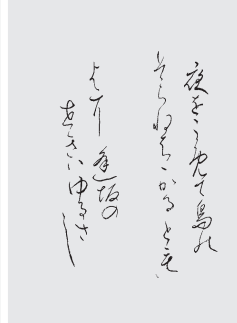 夜をこめて鳥の
そらねはゝかるとも
よに逢坂の
せきはゆるさし